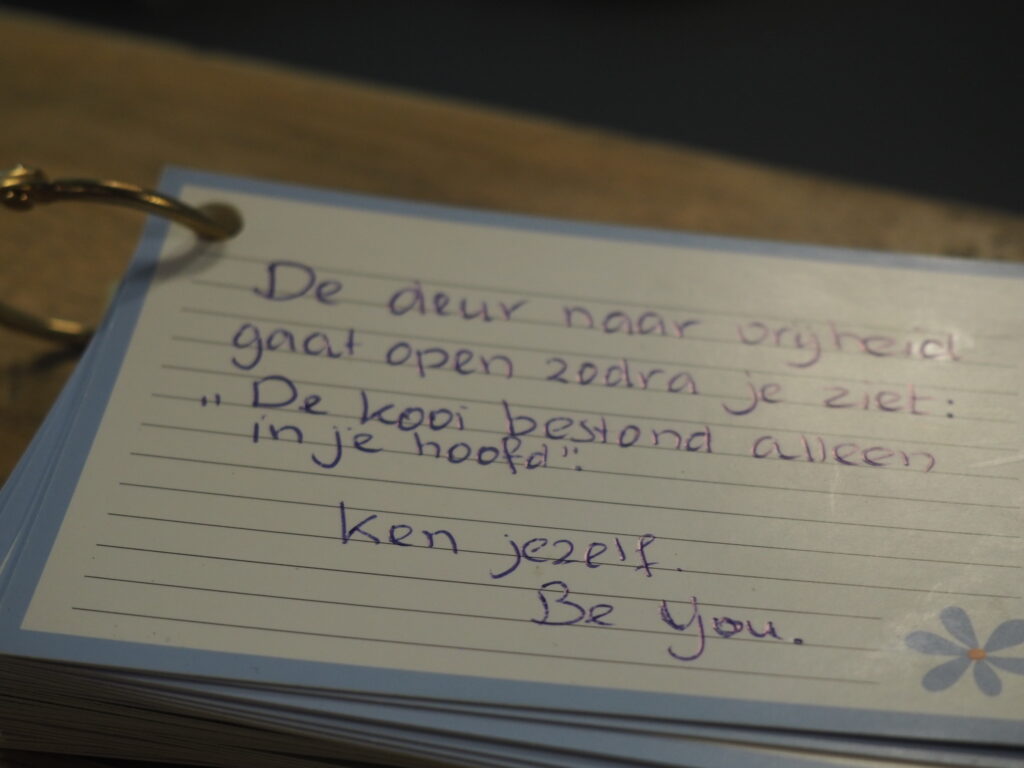 De deur naar vrijheid
gaat open zodra je ziet:
„De kooi bestond alleen
in je hoofd”.
Ken jezelf.
Be You.